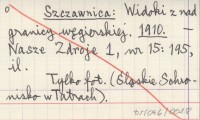 o Szczawnica: Widoki z nad
granicy węgierskiej. 1910. —
Nasze Zdroje 1, nr 15: 195,
il.
Tylko fot. (Śląskie Schro-
nisko w Tatrach).